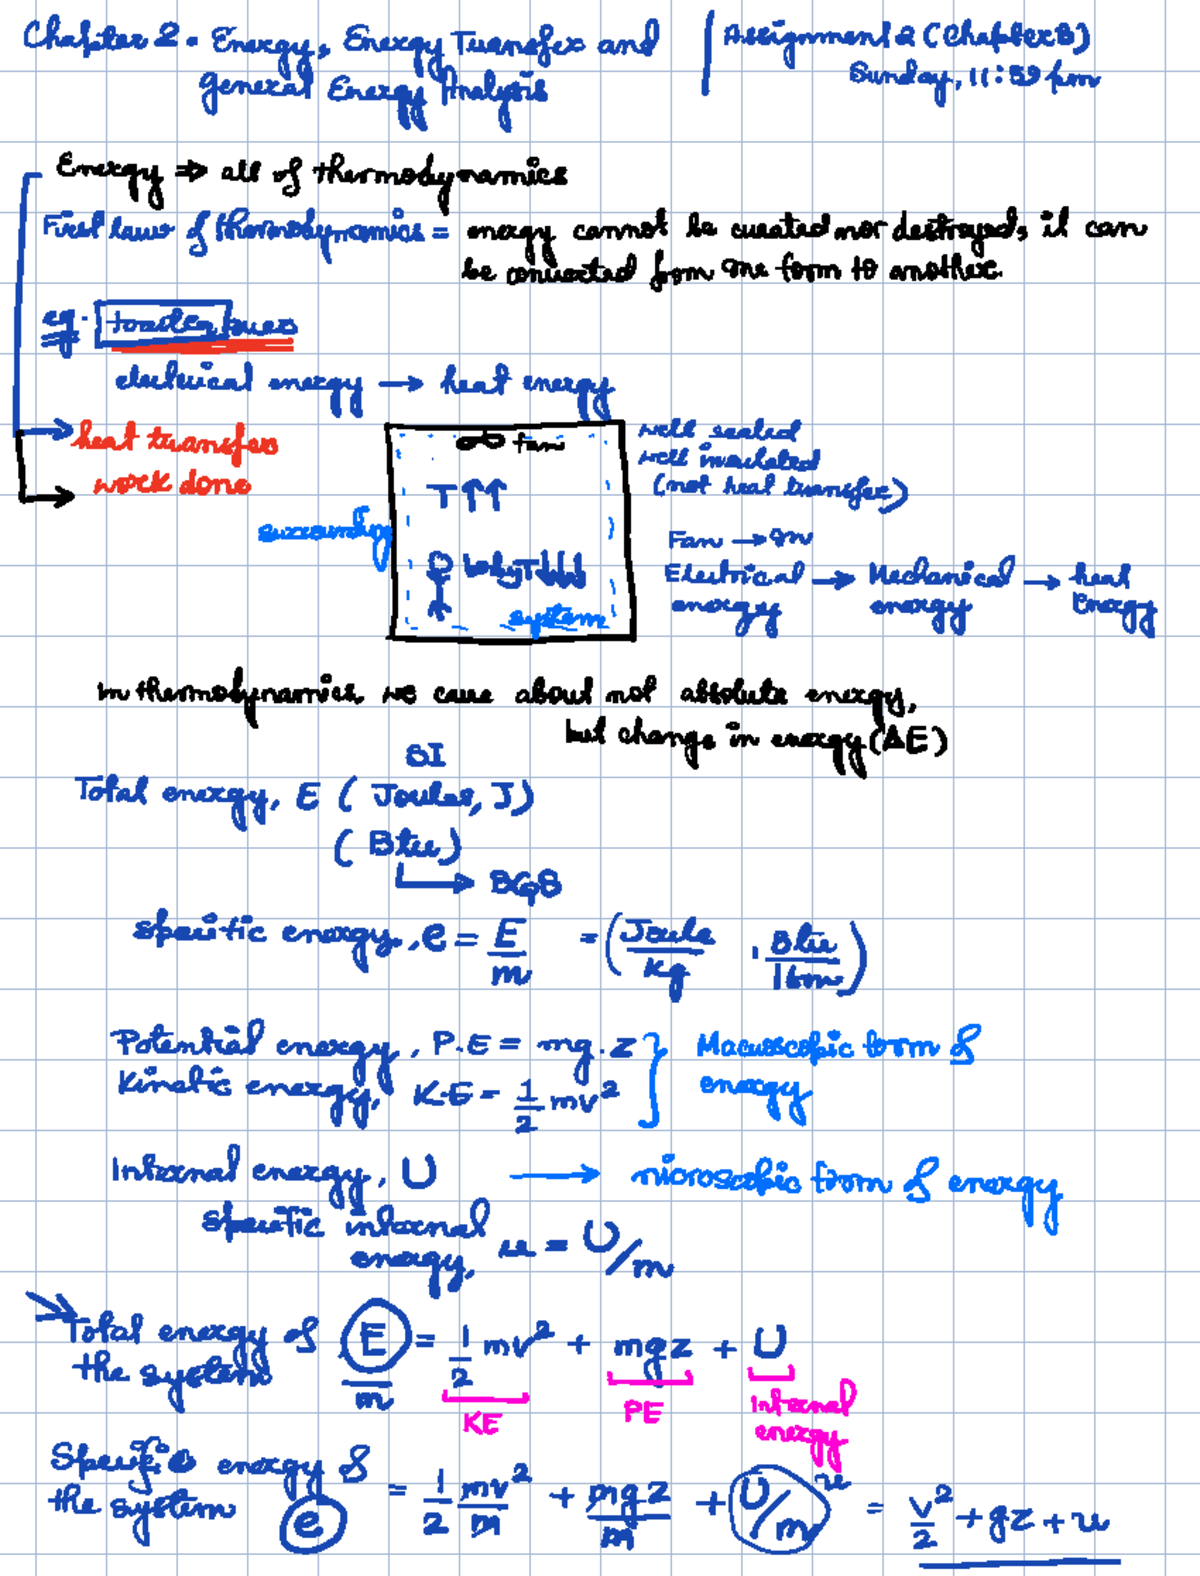 Chapter 2 - Energy, Energy Transfer and
General Energy Analysis
Assignment 2 (Chapter 3)
Sunday, 11:59 pm
Energy ⇒ all of thermodynamics
First law of thermodynamics = energy cannot be created nor destroyed, it can
be converted from one form to another.
eg.
electrical energy → heat energy
heat transfer
work done
fan
T↑↑
surrounding
why T↓↓↓
system
well sealed
well insulated
(not heat transfer)
Fan → on
Electrical energy → Mechanical energy → heat Energy
in thermodynamics we care about not absolute energy,
but change in energy (ΔE)
SI
Total energy, E ( Joules, J)
( Btu )
specific energy, e = E/m = (Joule/kg , Btu/lbm)
Potential energy, P.E = mg.z
Kinetic energy, K.E = 1/2 mv²
} Macroscopic form of
energy
Internal energy, U → microscopic form of energy
specific internal
energy, u = U/m
Total energy of
the system
E/m = 1/2 mv² + mgz + U
KE
PE
internal
energy
Specific energy of
the system
e = 1/2 mv²/m + mgz/m + U/m u = v²/2 + gz + u